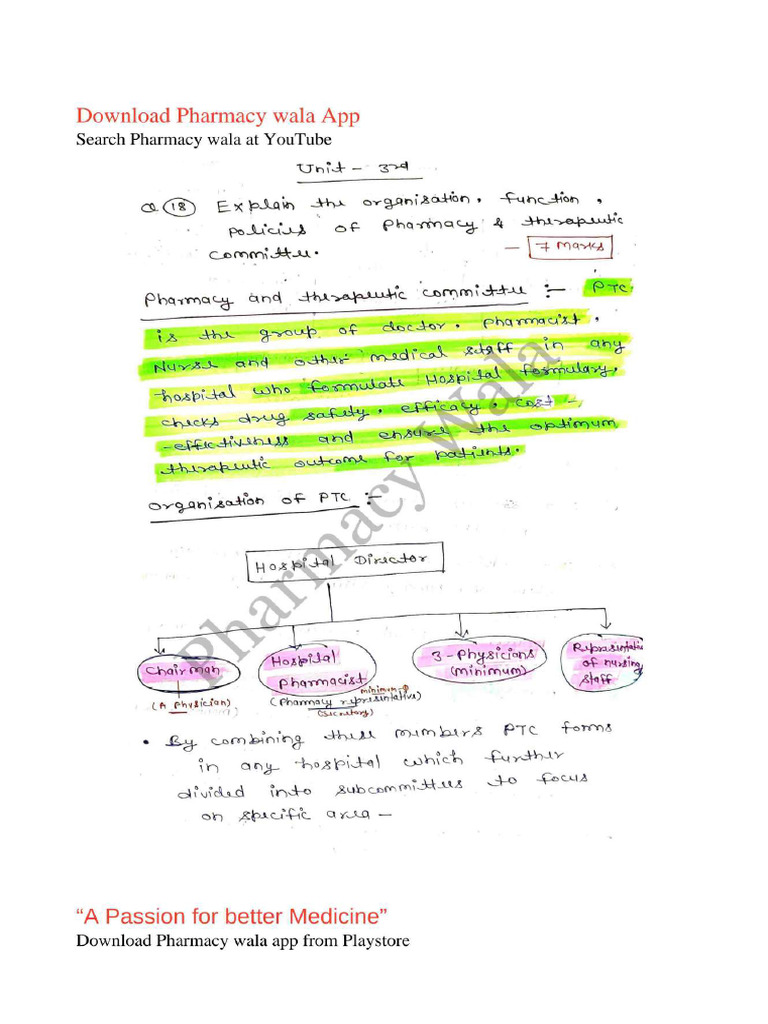 Download Pharmacy wala App
Search Pharmacy wala at YouTube
Unit - 3rd
Q (18) Explain the organisation, function,
policies of Pharmacy & therapeutic
committee. - 7 Marks
Pharmacy and therapeutic committee :- PTC
is the group of doctor, pharmacist,
Nurse and other medical staff in any
hospital who formulate Hospital formulary,
checks drug safety, efficacy, cost -
-effectiveness and ensure the optimum
therapeutic outcome for patients.
organisation of PTC :-
Hospital Director
Chairman
(A Physician)
Hospital
Pharmacist
minimum 1
(Pharmacy representative)
(Secretary)
3-Physicians
(minimum)
Representative
of nursing
staff
• By combining these members PTC forms
in any hospital which further
divided into subcommittees to focus
on specific area -
Pharmacy Wala
“A Passion for better Medicine”
Download Pharmacy wala app from Playstore